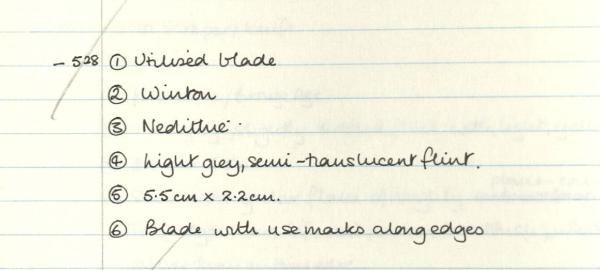 - 528 ① Utilised blade
② Winton
③ Neolithic
④ Light grey, semi-translucent flint.
⑤ 5.5cm x 2.2cm.
⑥ Blade with use marks along edges